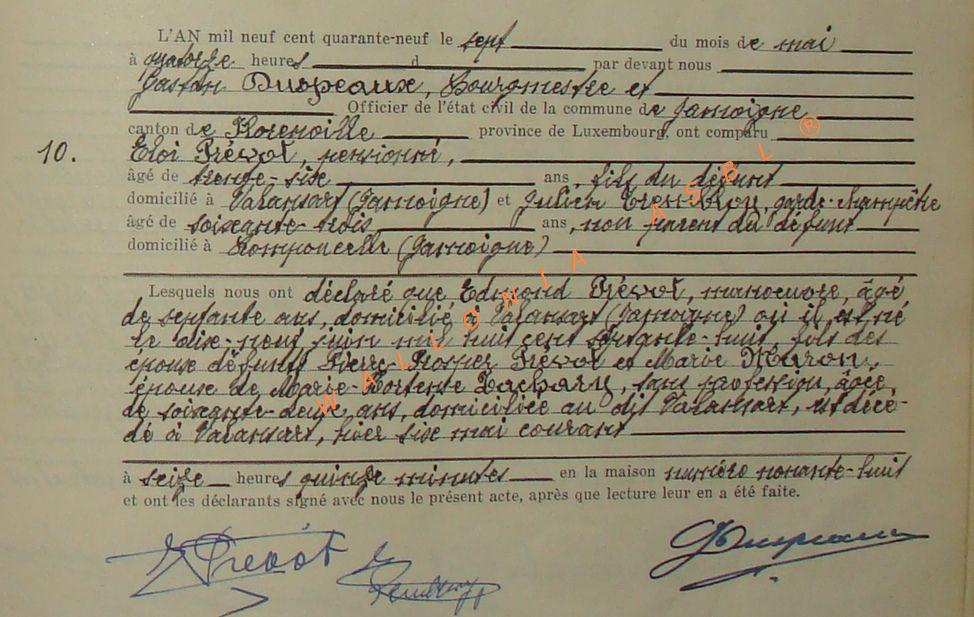 L'AN mil neuf cent quarante-neuf le sept du mois de mai
à quatorze heures d par devant nous
Gaston Duspeaux, Bourgmestre et
Officier de l'état civil de la commune de Jamoigne
canton de Florenville province de Luxembourg, ont comparu
10. Eloi Prévot, pensionné,
âgé de trente-six ans, fils du défunt
domicilié à Valansart (Jamoigne) et Julien garde-champêtre
âgé de soixante-trois ans, non parent du défunt
domicilié à Romponcelle (Jamoigne)
Lesquels nous ont déclaré que Edmond Prévot, manoeuvre, âgé
de septante ans, domicilié à Valansart (Jamoigne) où il est né
le dix-neuf juin mil huit cent septante-huit, fils des
époux défunts Pierre-Prosper Prévot et Marie Muron,
époux de Marie-Hortense Zachary, sans profession, âgée
de soixante-deux ans, domiciliée au dit Valansart, est décé-
dé à Valansart, hier six mai courant
à seize heures quinze minutes en la maison numéro nonante-huit
et ont les déclarants signé avec nous le présent acte, après que lecture leur en a été faite.
E Prévot
WALLONIA ASBL ®